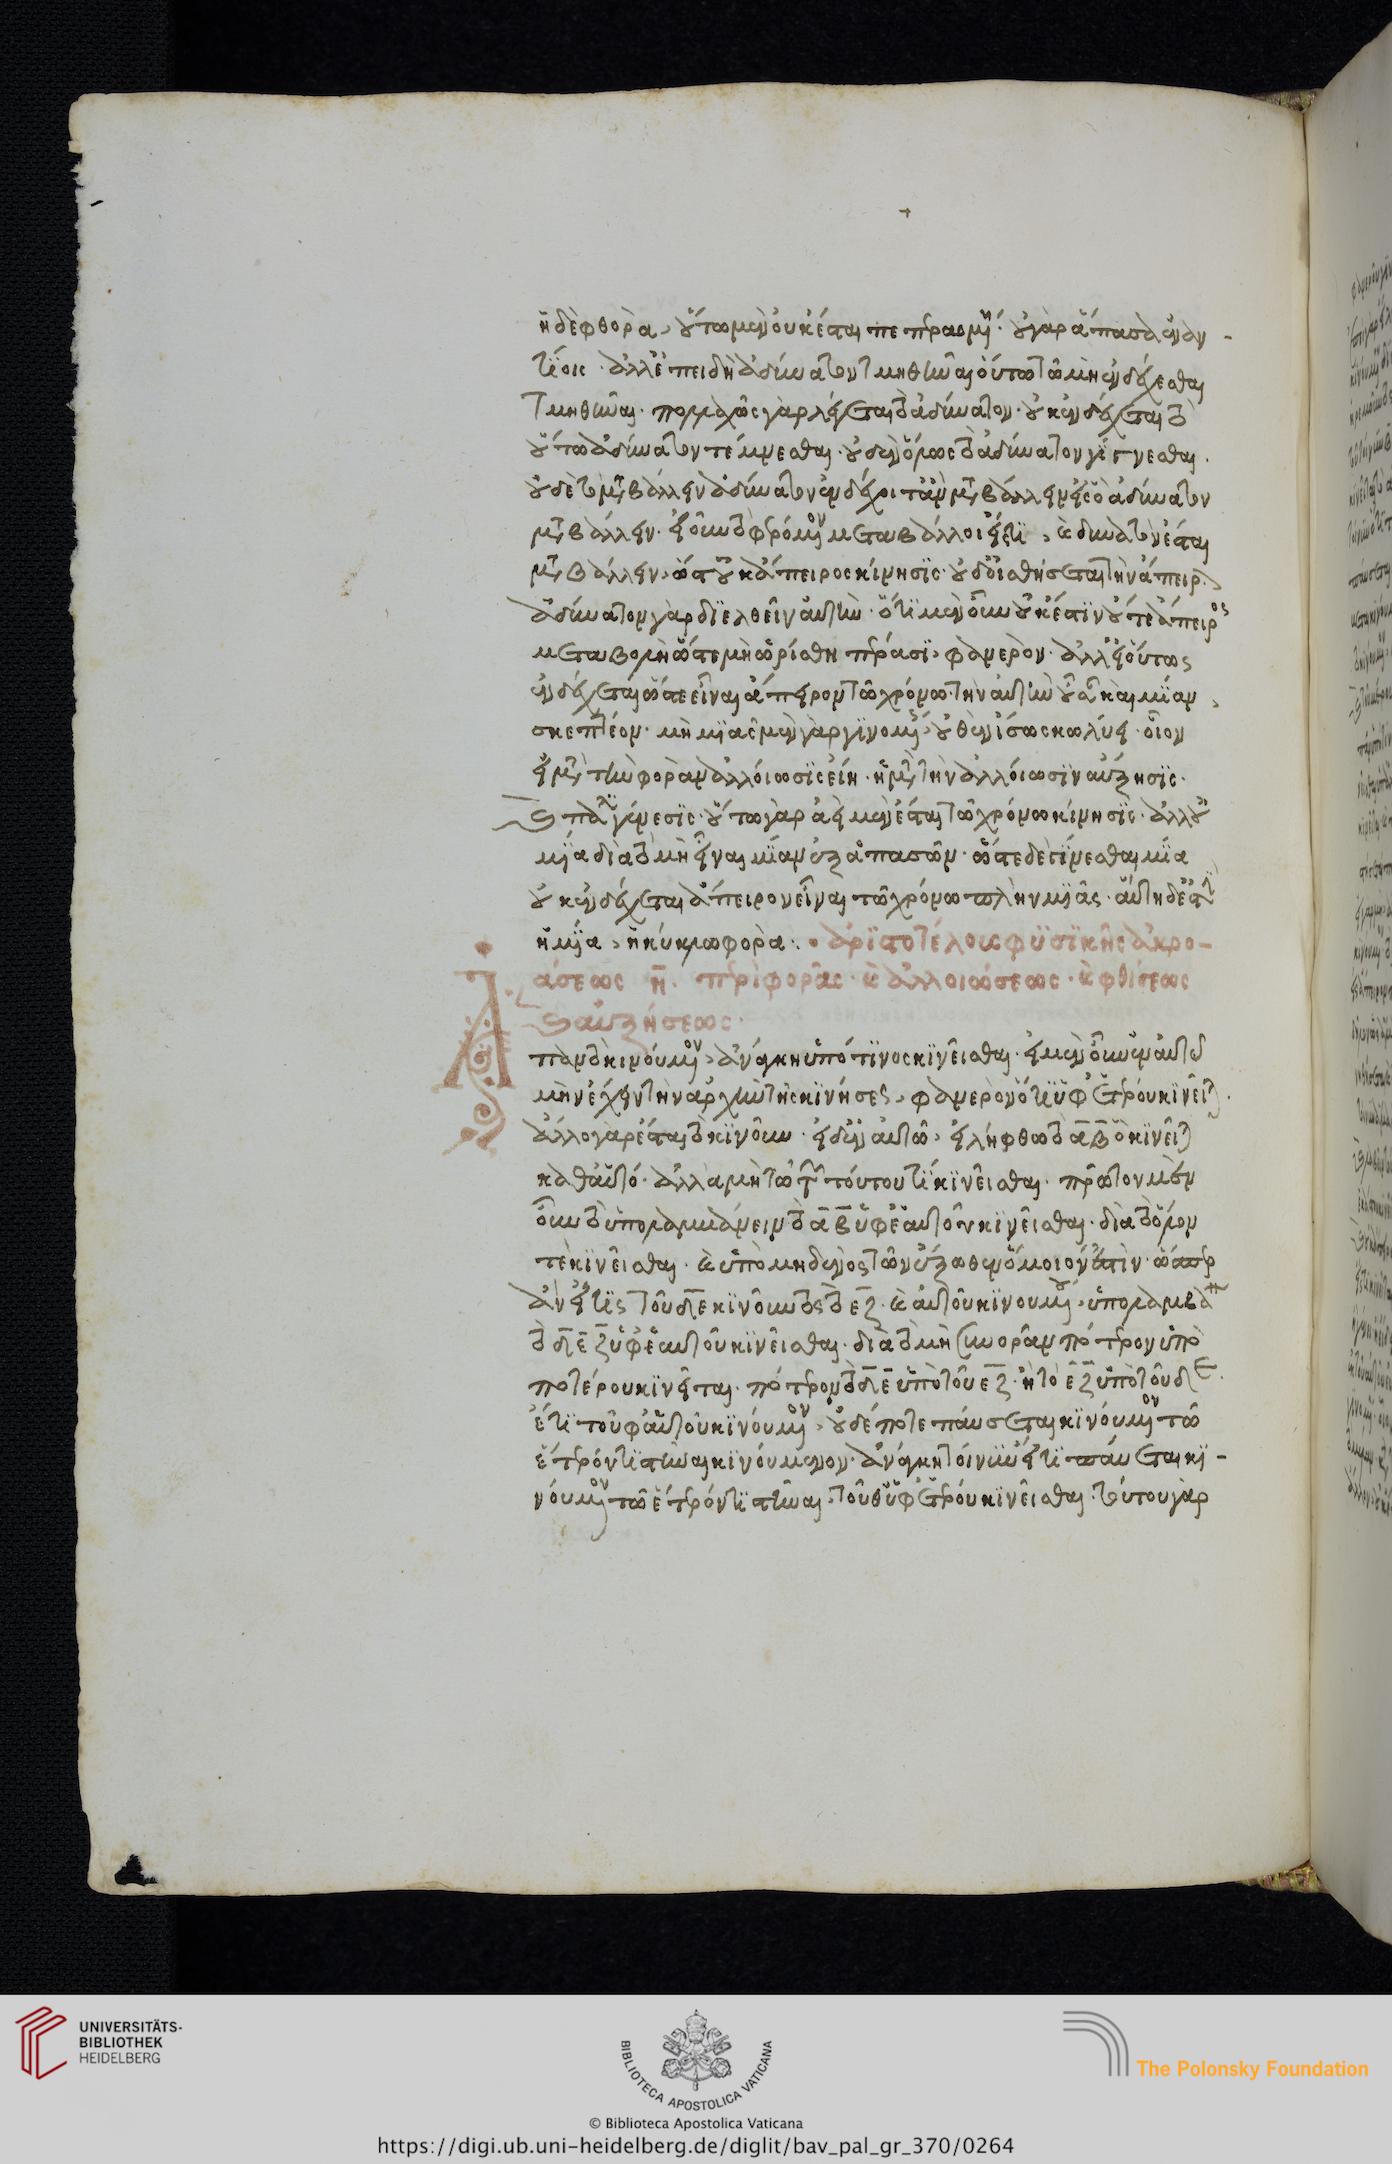 ἡ δὲ φθορὰ, οὕτω μὲν οὐκ ἔσται πεπερασμένη· οὐ γὰρ ἅπασα ἐν ἐναν-
τίοις· ἀλλ' ἐπειδὴ ἀδύνατον τμηθῆναι οὕτω τῶ μὴ ἐνδέχεσθαι
τμηθῆναι· πολλαχῶς γὰρ λέγεται τὸ ἀδύνατον· οὐκ ἐνδέχεται τὸ
οὕτω ἀδύνατον τέμνεσθαι· οὐδὲν ὅλως τὸ ἀδύνατον γίγνεσθαι·
οὐδὲ τὸ μεταβάλλειν ἀδύνατον ἐνδέχοιτ' ἂν μεταβάλλειν εἰς ὃ ἀδύνατον
μεταβάλλειν· εἰ οὖν τὸ φερόμενον μεταβάλλοι εἴς τι, καὶ δυνατὸν ἔσται
μεταβάλλειν, ὥστ' οὐκ ἄπειρος κίνησις· οὐδ' οἰσθήσεται τὴν ἄπειρον,
ἀδύνατον γὰρ διελθεῖν αὐτήν· ὅτι μὲν οὖν οὐκ ἔστιν οὔτε ἄπειρος
μεταβολὴ ὥστε μὴ ὡρίσθη πέρασι, φανερόν· ἀλλ' εἰ οὕτως
ἐνδέχεται ὥστε εἶναι ἄπειρον τῶ χρόνω τὴν αὐτὴν οὖσαν καὶ μίαν,
σκεπτέον· μὴ μιᾶς μὲν γὰρ γινομένης, οὐθὲν ἴσως κωλύει· οἷον
εἰ μετὰ τὴν φορὰν ἀλλοίωσις εἴη· ἢ μετὰ τὴν ἀλλοίωσιν αὔξησις·
καὶ πάλιν γένεσις· οὕτω γὰρ ἀεὶ μὲν ἔσται τῶ χρόνω κίνησις· ἀλλ' οὐ
μία διὰ τὸ μὴ εἶναι μίαν ἐξ ἁπασῶν· ὥστε δὲ γίνεσθαι μία
οὐκ ἐνδέχεται ἄπειρον εἶναι τῶ χρόνω πλὴν μιᾶς· αὕτη δέ ἐστιν
ἡ μία, ἡ κύκλω φορὰ:. ἀριστοτέλους φυσικῆς ἀκρο-
άσεως η̄. περὶ φορᾶς· καὶ ἀλλοιώσεως· καὶ φθίσεως
καὶ αὐξήσεως·
Ἅπαν τὸ κινούμενον, ἀνάγκη ὑπό τινος κινεῖσθαι· εἰ μὲν οὖν ἐν αὑτῶ
μὴν ἔχει τὴν ἀρχὴν τῆς κινήσεως, φανερὸν ὅτι ὑφ' ἑτέρου κινεῖται·
ἄλλο γὰρ ἔσται τὸ κινοῦν· εἰ δ' ἐν αὑτῶ, εἰλήφθω τὸ ᾱβ̄ ὃ κινεῖται
καθ' αὑτό· ἀλλὰ μὴ τῶ τῶν τούτου τὶ κινεῖσθαι· πρῶτον μὲν
οὖν τὸ ὑπολαμβάνειν τὸ ᾱβ̄ ὑφ' ἑαυτοῦ κινεῖσθαι· διὰ τὸ ὅλον
τὲ κινεῖσθαι· καὶ ὑπὸ μηδενὸς τῶν ἔξωθεν ὅμοιον ἐστὶν· ὥσπερ
ἂν εἴ τις τοῦ δ̄ε̄ κινοῦντος τὸ ε̄ζ̄· καὶ αὐτοῦ κινουμένου, ὑπολαμβάνοι
τὸ δ̄ε̄ζ̄ ὑφ' ἑαυτοῦ κινεῖσθαι· διὰ τὸ μὴ συνορᾶν πότερον ὑπὸ
ποτέρου κινεῖται· πότερον τὸ δ̄ε̄ ὑπὸ τοῦ ε̄ζ̄· ἢ τὸ ε̄ζ̄ ὑπὸ τοῦ δ̄ε̄.
ἔτι τὸ ὑφ' αὑτοῦ κινούμενον, οὐδέποτε παύσεται κινούμενον τῶ
ἕτερόν τι στῆναι κινούμενον· ἀνάγκη τοίνυν εἴ τι παύεται κι-
νούμενον τῶ ἕτερόν τι στῆναι, τοῦθ' ὑφ' ἑτέρου κινεῖσθαι· τούτου γὰρ
UNIVERSITÄTS-
BIBLIOTHEK
HEIDELBERG
BIBLIOTECA APOSTOLICA VATICANA
The Polonsky Foundation
© Biblioteca Apostolica Vaticana
https://digi.ub.uni-heidelberg.de/diglit/bav_pal_gr_370/0264